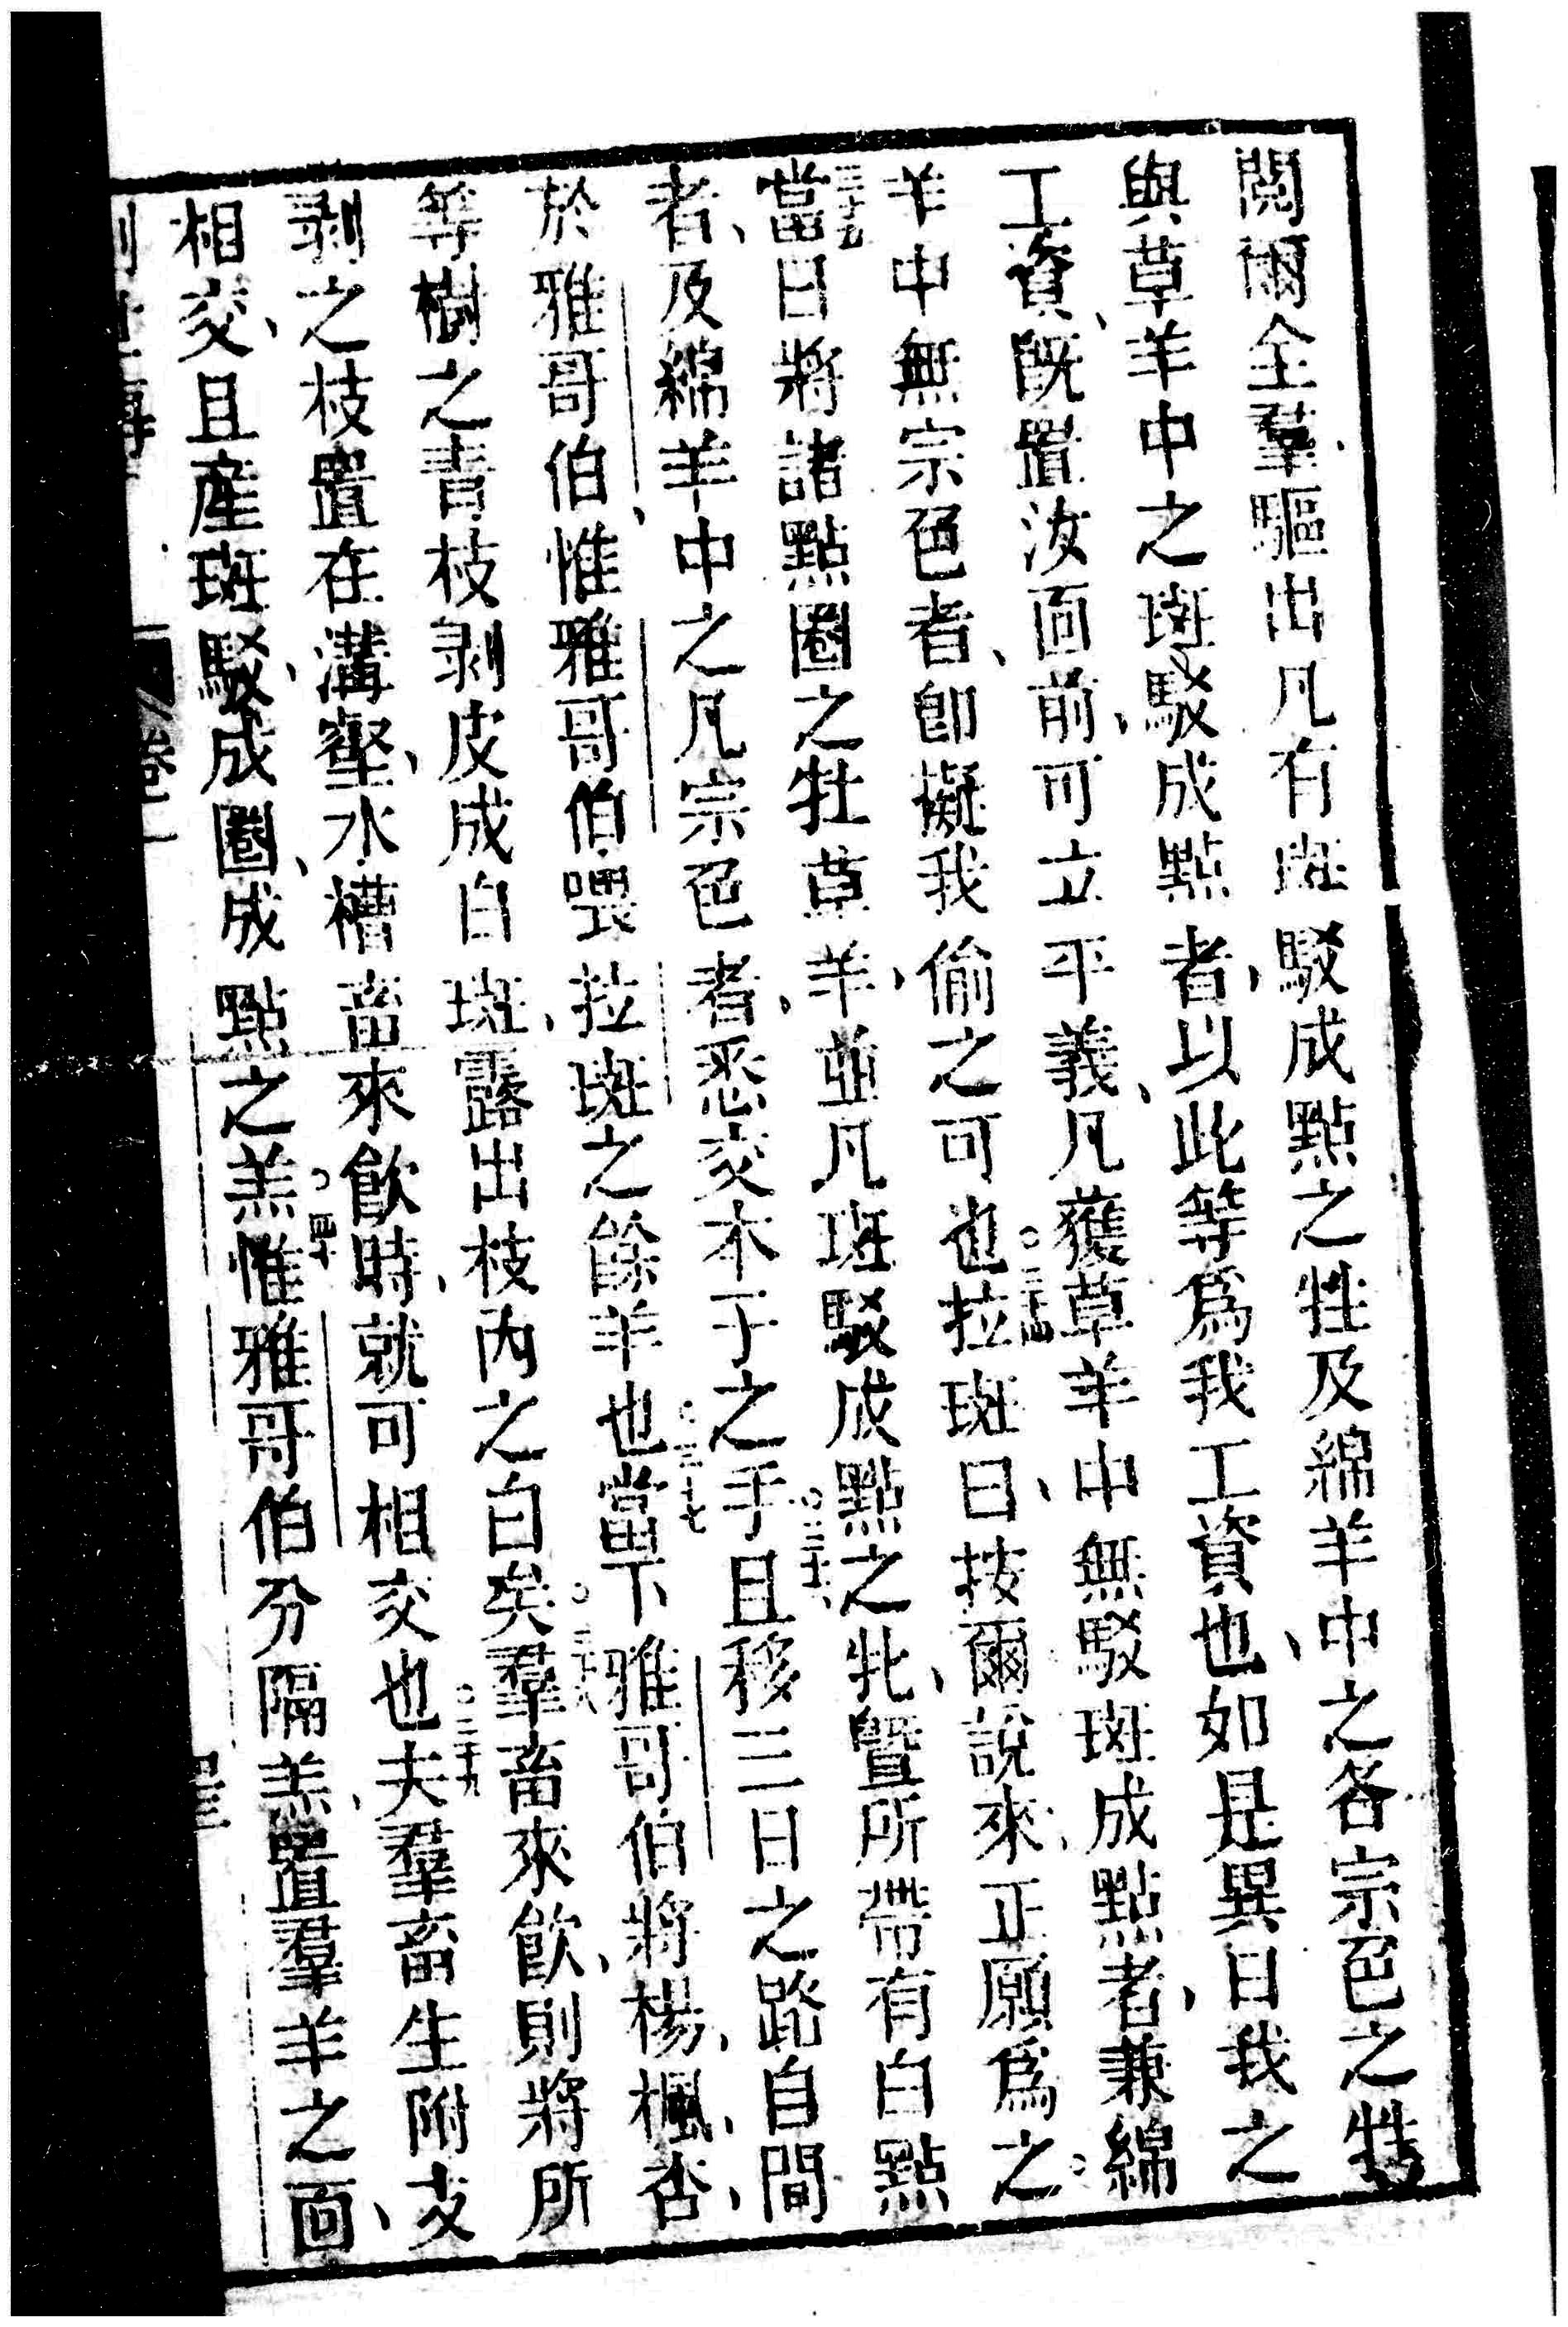 閱爾全羣驅出凡有斑駁成點之牲及綿羊中之各宗色之牲
與草羊中之斑駁成點者、以此等爲我工資也、如是異日我之
工資、既置汝面前、可立平義、凡獲草羊中無駁斑成點者、兼綿
羊中無宗色者、卽擬我偷之可也。三十四拉班曰、按爾說來、正願爲之。
三十五當日將諸點圈之牡草羊、並凡斑駁成點之牝、曁所帶有白點
者、及綿羊中之凡宗色者、悉交本子之手。三十六且移三日之路自間
於雅哥伯、惟雅哥伯喂拉班之餘羊也。三十七當下雅哥伯將楊、楓、杏、
等樹之青枝剥皮成白斑、露出枝內之白矣。三十八羣畜來飲、則將所
剥之枝置在溝壑、水槽畜來飲時、就可相交也。三十九夫羣畜生附支
相交、且產斑駁、成圈、成點之羔。四十惟雅哥伯分隔羔、置羣羊之面、
卷一